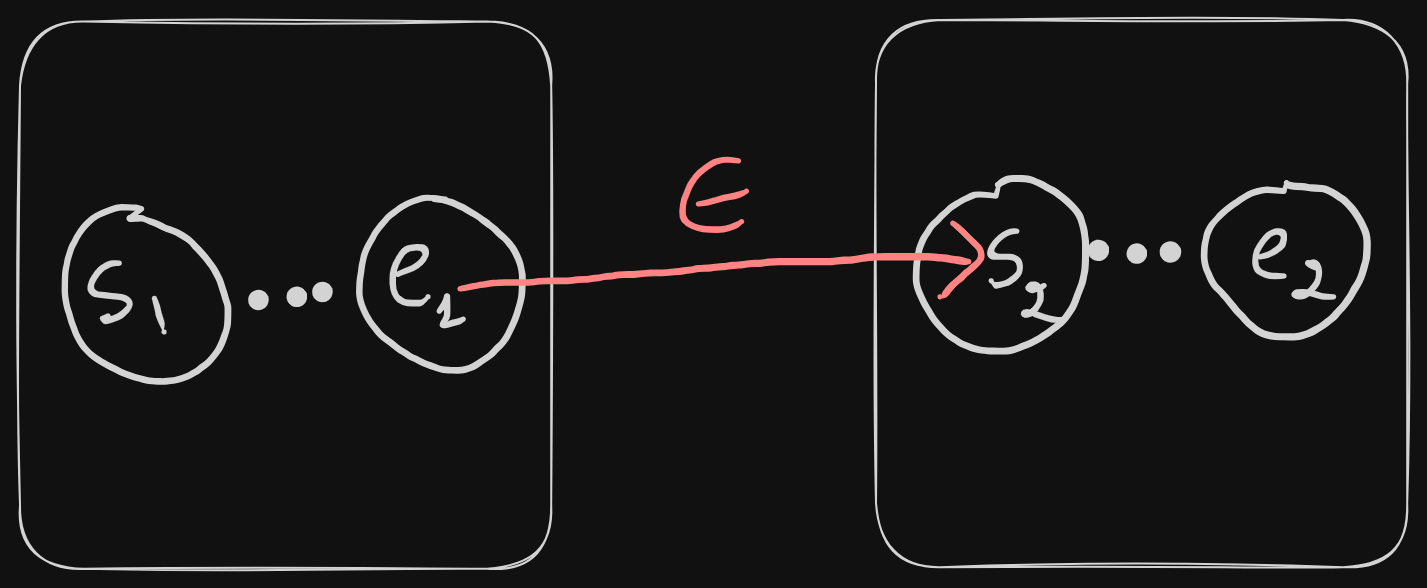 ϵ
s₁ ... e₁ s₂ ... e₂